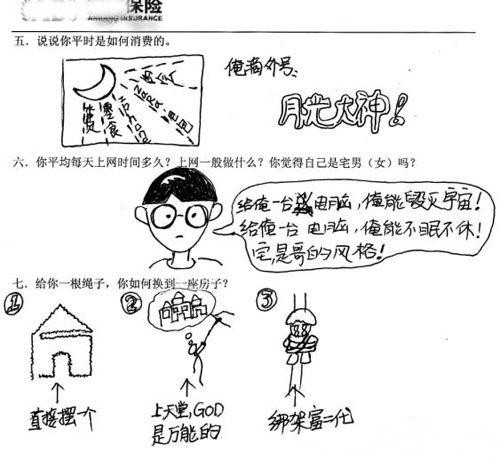 保险
ANBANG INSURANCE
五．说说你平时是如何消费的。
俺滴外号:
月光大神!
零食
ZARA
六．你平均每天上网时间多久？上网一般做什么？你觉得自己是宅男（女）吗？
给俺一台电脑,俺能毁灭宇宙!
给俺一台电脑,俺能不眠不休!
宅是哥的风格!
七．给你一根绳子，你如何换到一座房子？
① ② ③
直接摆一个
上天堂,GOD
是万能的
绑架富二代